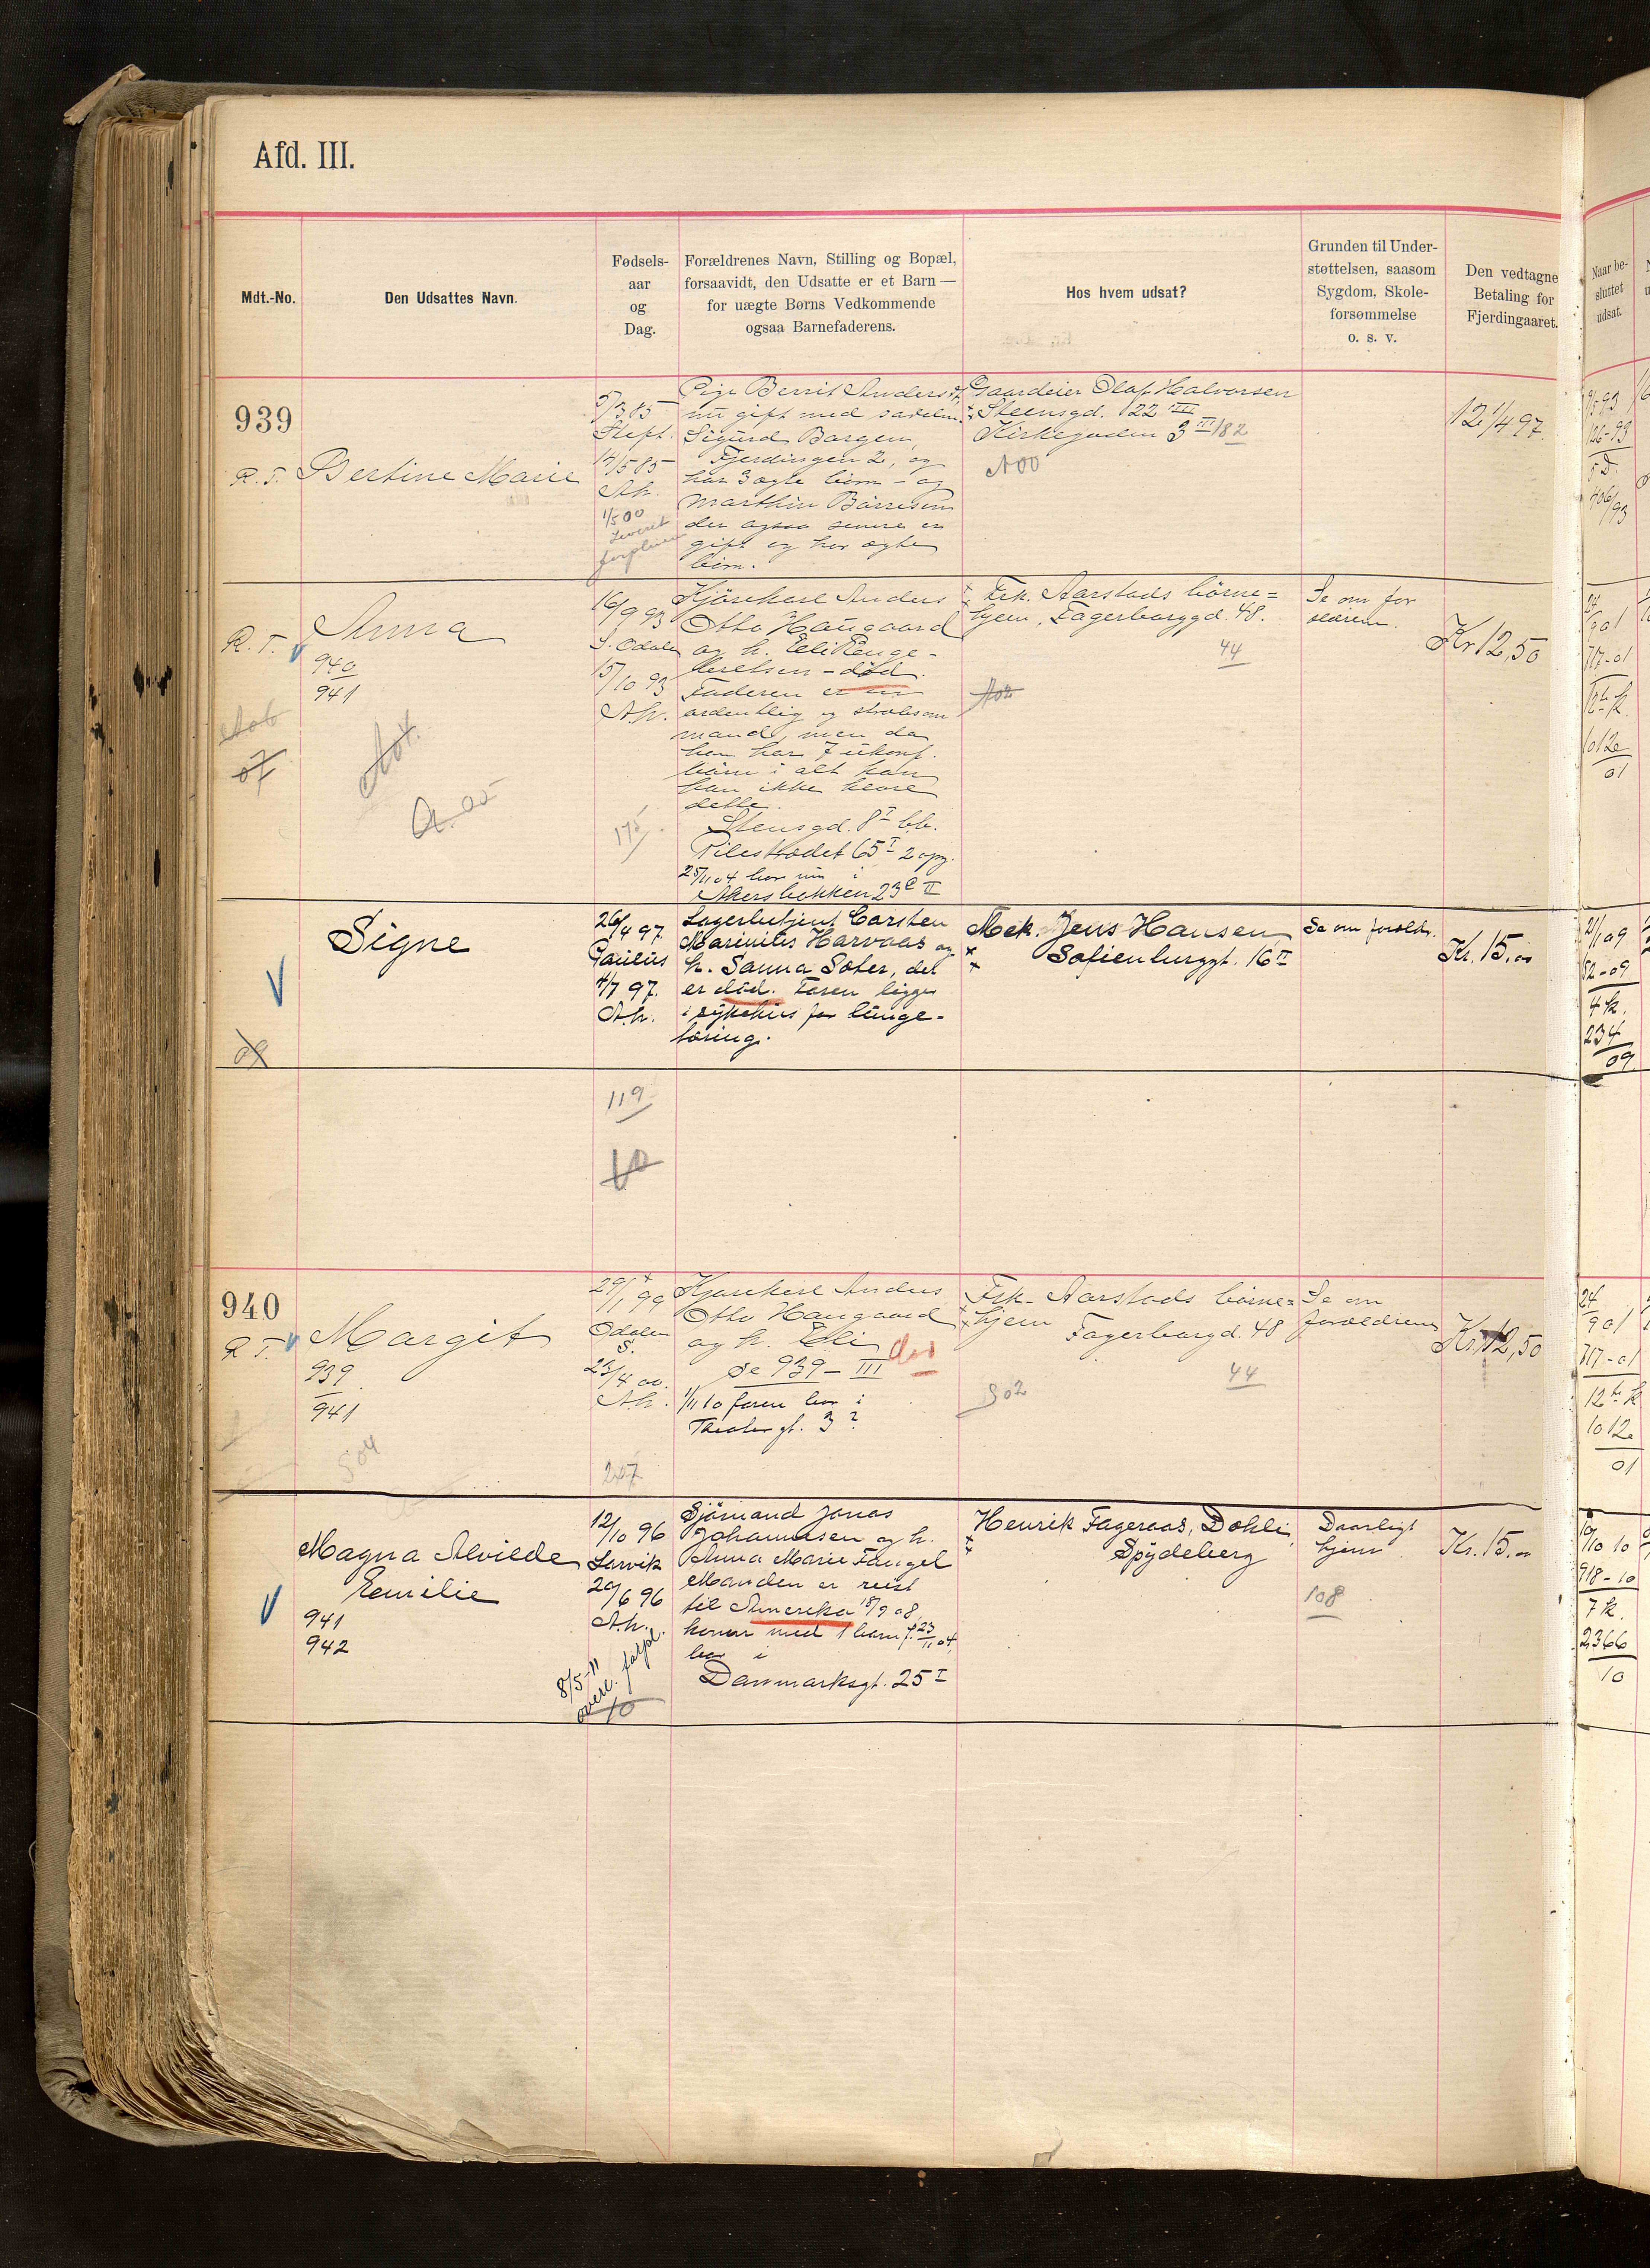 Afd. III.
Mdt.-No.
Den Udsattes Navn.
Fødsels-
aar
og
Dag.
Forældrenes Navn, Stilling og Bopæl,
forsaavidt, den Udsatte er et Barn —
for uægte Børns Vedkommende
ogsaa Barnefaderens.
Hos hvem udsat?
Grunden til Under-
støttelsen, saasom
Sygdom, Skole-
forsømmelse
o. s. v.
Den vedtagne
Betaling for
Fjerdingaaret.
Naar be-
sluttet
udsat.
939
R. T. Bertine Marie
5/3 85
14/5 85
Ak.
1/5 00
Pige Berrit Anders
nu gift med
Sigurd Borgen,
Fjerdingen 2, og
har 3 ægte børn - og
Marthin Børresen
der ogsaa senere er
gift og har ægte
børn.
Gaardeier Olaf Halvorsen
Steensgd. 22 III
Kirkegaden 3 III/82
A00
12 1/4 97.
R. T. Anna
940
941
16/9 93
S. Odalen
15/10 93
A.k.
175
Kjørekarl Anders
Otto Haugaard
og h. Eli
død.
Faderen er en
ordentlig og strebsom
mand, men da
han har 7 ukonf.
børn i alt kan
han ikke klare
dette.
Stensgd. 8 I b.b.
Pilestrædet 65 I 2 opg.
25/11 04 bor nu i
Akersbakken 23 c II
Frk. Aarstads børne=
hjem, Fagerborggd. 48.
44
Se om for
ældrene.
Kr 12,50
Signe
26/4 97.
Paulus
4/7 97.
A.k.
Lagerbetjent Carsten
Marinius Harvaas og
h. Sanna Soter, det
er død. Faren ligger
i sykehus for lunge-
tæring.
Mek. Jens Hansen
Sofienberggt. 16 II
Se om foreldr.
Kr. 15.00
21/1 09
52-09
4 k.
234
09
119
940
R T. Margit
939
941
29/1 99
Odalen
S.
23/4 00.
A.k.
247
Kjørekarl Anders
Otto Haugaard
og h. Eli død
Se 939 - III
1/11 10 faren bor i
Theatergt. 3 ?
Frk. Aarstads børne=
hjem Fagerborgd. 48
44
Se om
forældrene
Kr 12,50
24/9 01
717-01
12te k
1012
01
Magna Alvilde
Emilie
941
942
12/10 96
Larvik
20/6 96
A.k.
8/5-11
Sjømand Jonas
Johannesen og h.
Anna Marie Fangel
Manden er reist
til Amerika 18/9 08,
konen med 1 barn f. 23/11 04
bor i
Danmarksgt. 25 I
Henrik Fageraas, Dokli,
Spydeberg
Daarligt
hjem
108
Kr. 15.00
10/10 10
918-10
7 k.
2366
10